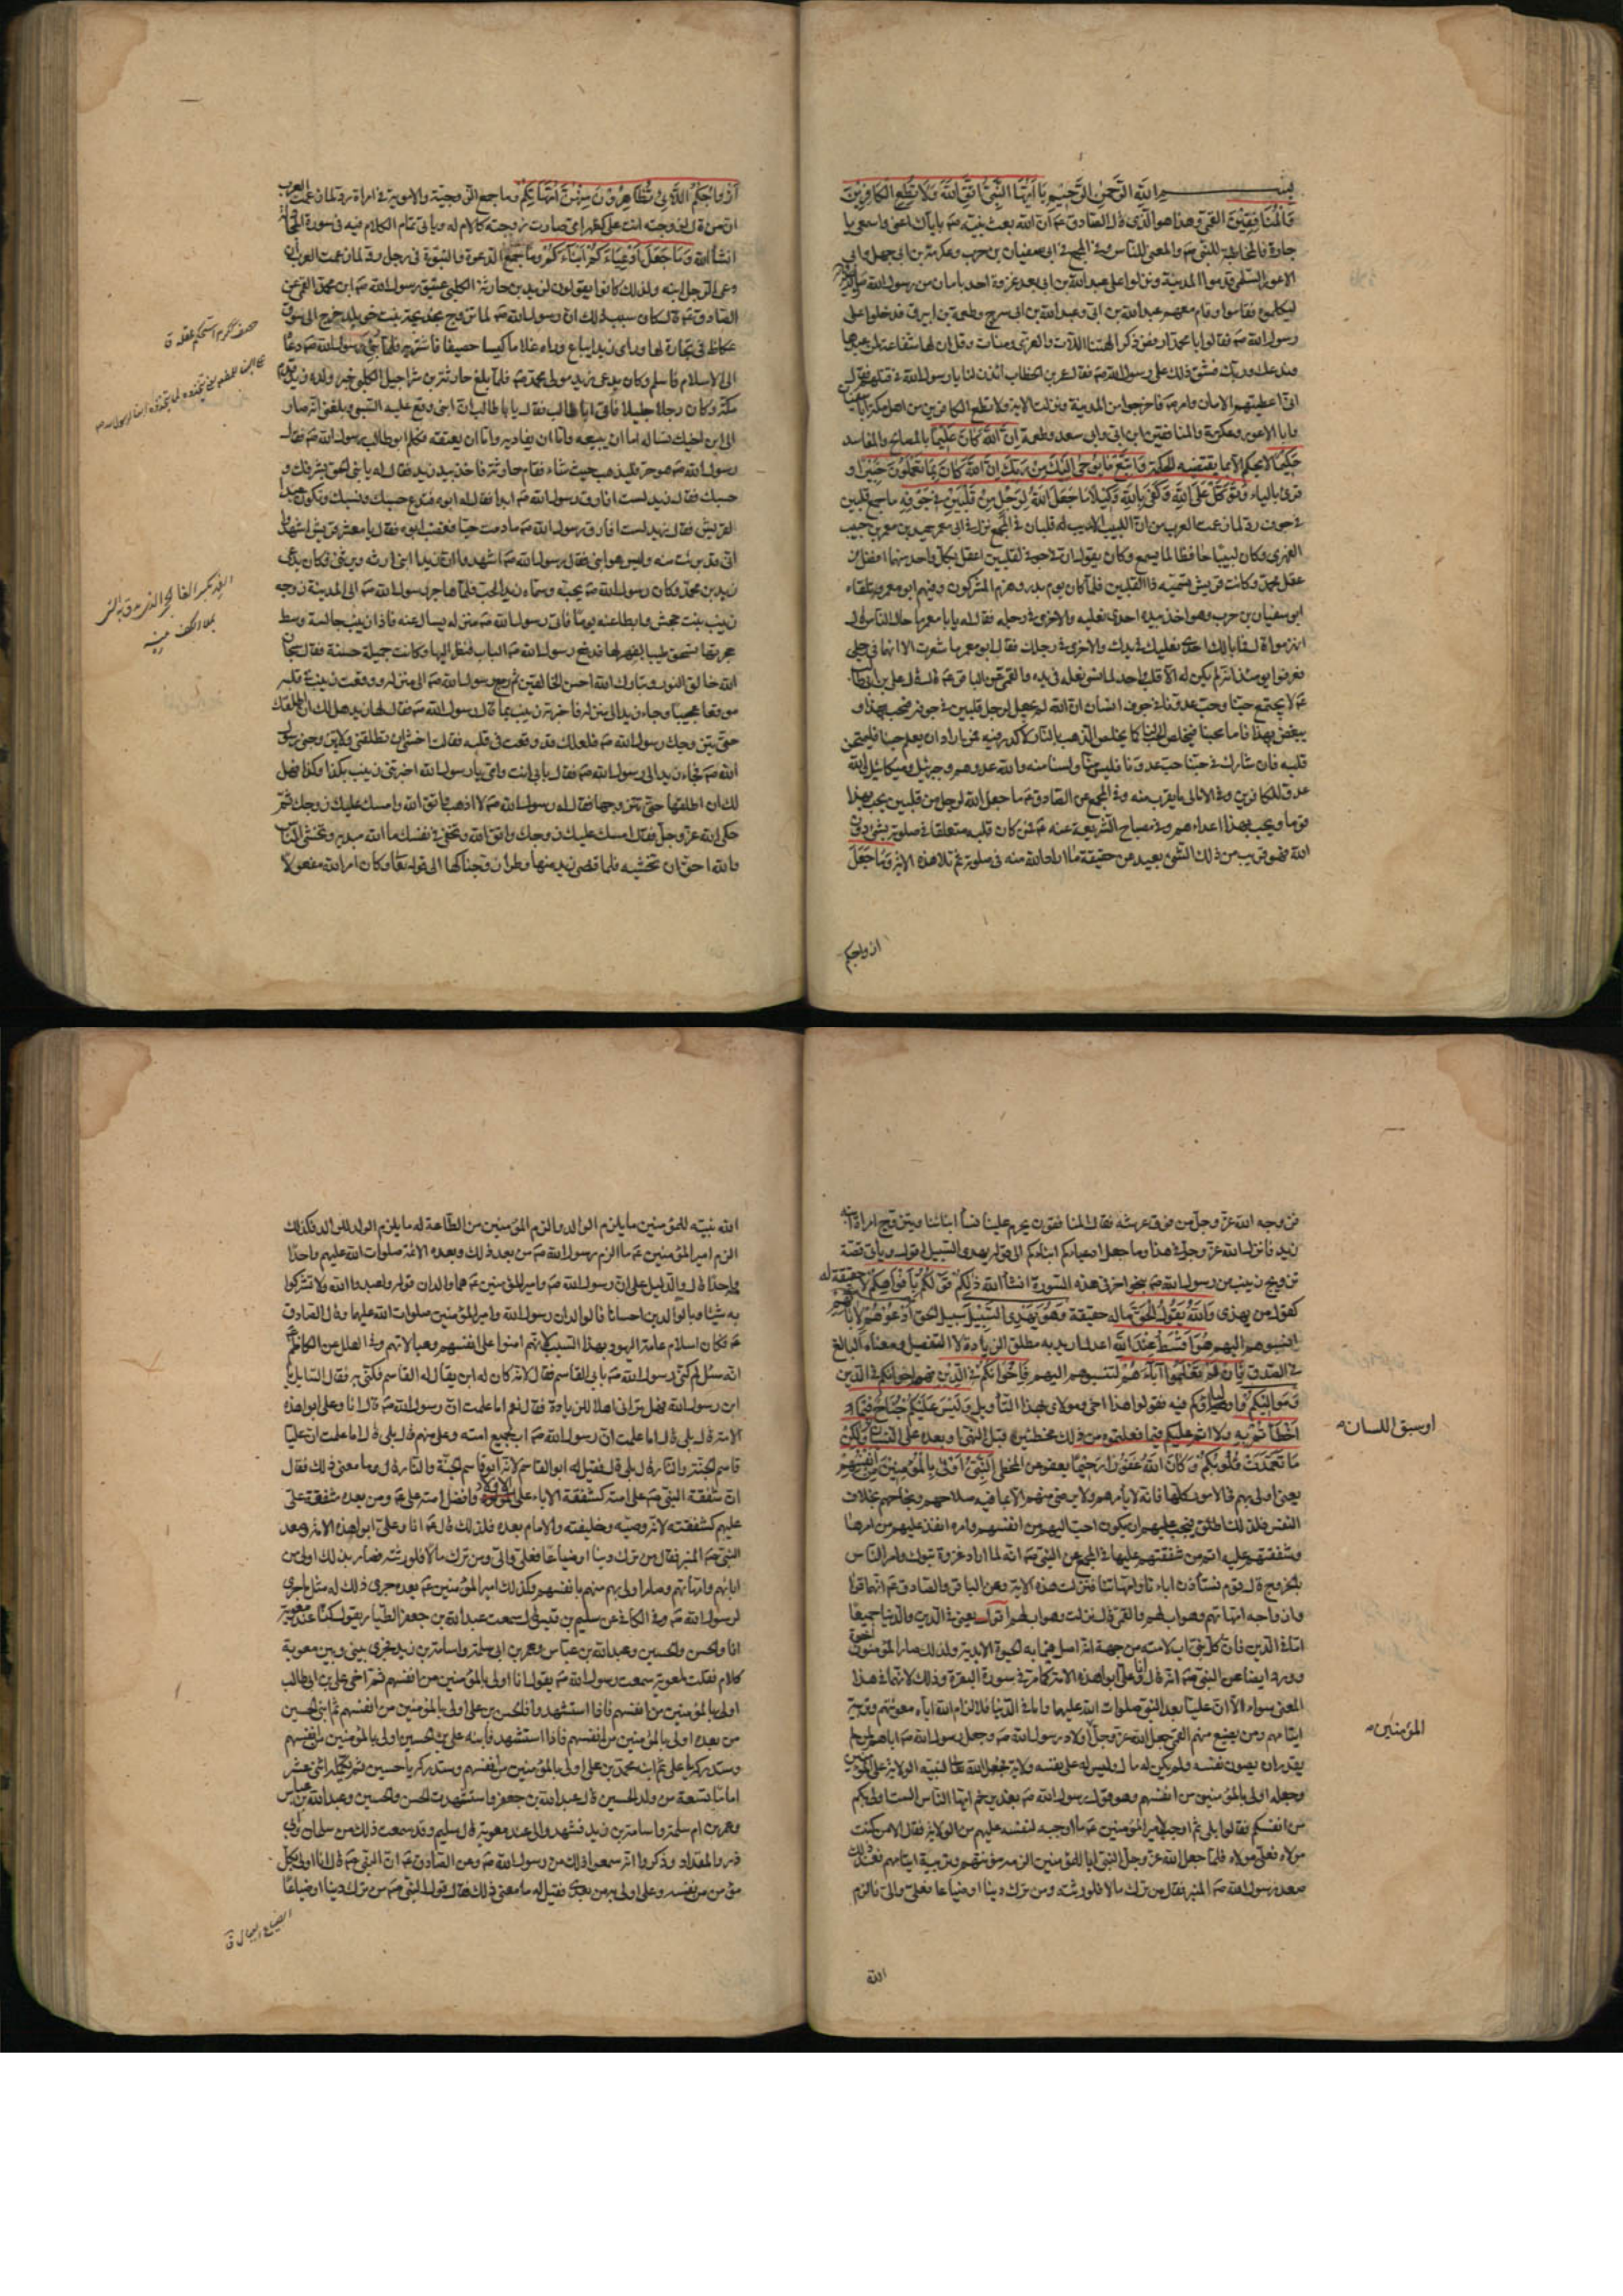 بسم الله الرحمن الرحيم يا ايها النبي اتق الله ولا تطع الكافرين
والمنافقين القمي وهذا هو الذي قال الصادق ان الله بعث نبيه باياك اعني واسمعي يا
جارة فالمخاطبة للنبي والمعنى للناس وفي المجمع نزلت في ابي سفيان بن حرب وعكرمة بن ابي جهل وابي
الاعور السلمي قدموا المدينة ونزلوا على عبد الله بن ابي بعد غزوة احد بامان من رسول الله
ليكلموه فقاموا وقام معهم عبد الله بن ابي وعبد الله بن ابي سرح وطعمة بن ابيرق فدخلوا على
رسول الله فقالوا يا محمد ارفض ذكر الهتنا اللات والعزى ومنات وقل ان لها شفاعة لمن عبدها
وندعك وربك فشق ذلك على رسول الله فقال عمر بن الخطاب ائذن لنا يا رسول الله في قتلهم فقال
اني اعطيتهم الامان وامر فاخرجوا من المدينة ونزلت الاية ولا تطع الكافرين من اهل مكة ابا سفيان
وابا الاعور وعكرمة والمنافقين ابن ابي وابن سعد وطعمة ان الله كان عليما بالمصالح والمفاسد
حكيما لا يحكم الا بما يقتضيه الحكمة واتبع ما يوحى اليك من ربك ان الله كان بما تعملون خبيرا و
قرئ بالياء وتوكل على الله وكفى بالله وكيلا ما جعل الله لرجل من قلبين في جوفه ما جمع قلبين
في جوف رد لما زعمت العرب من ان اللبيب الاديب له قلبان في المجمع نزل في ابي معمر حميد بن معمر بن حبيب
الفهري وكان لبيبا حافظا لما يسمع وكان يقول ان في جوفي لقلبين اعقل بكل واحد منهما افضل من
عقل محمد وكانت قريش تسميه ذا القلبين فلما كان يوم بدر وهزم المشركون وفيهم ابو معمر وتلقاه
ابو سفيان بن حرب وهو اخذ بيده احدى نعليه والاخرى في رجله فقال له يا ابا معمر ما حال الناس قال
انهزموا قال فما بالك احدى نعليك في يدك والاخرى في رجلك فقال ابو معمر ما شعرت الا انهما في رجلي
فعرفوا يومئذ انه لم يكن له الا قلب واحد لما نسي نعله في يده والقمي عن الباقر قال قال علي بن ابي طالب
لا يجتمع حبنا وحب عدونا في جوف انسان ان الله لم يجعل لرجل قلبين في جوفه فيحب بهذا و
يبغض بهذا فاما محبنا فيخلص الحب لنا كما يخلص الذهب بالنار لا كدر فيه فمن اراد ان يعلم حبنا فليمتحن
قلبه فان شارك في حبنا حب عدونا فليس منا ولسنا منه والله عدوهم وجبرئيل وميكائيل والله
عدو للكافرين وفي الامالي ما يقرب منه وفي المجمع عن الصادق ما جعل الله لرجل من قلبين يحب بهذا
قوما ويحب بهذا اعداءهم وفي مصباح الشريعة عنه فمن كان قلبه متعلقا في صلوته بشيء دون
الله فهو قريب من ذلك الشيء بعيد عن حقيقة ما اراد الله منه في صلوته ثم تلا هذه الاية وما جعل
ازواجكم
ازواجكم اللائي تظاهرون منهن امهاتكم وما جمع الزوجية والامومة في امراة رد لما زعمت العرب
ان من قال لزوجته انت علي كظهر امي صارت زوجته كالام له وياتي تمام الكلام فيه في سورة المجادلة
انشاء الله وما جعل ادعياءكم ابناءكم وما جمع الدعوة والنبوة في رجل رد لما زعمت العرب ان
دعي الرجل ابنه ولذلك كانوا يقولون لزيد بن حارثة الكلبي عتيق رسول الله ابن محمد القمي عن
الصادق قال كان سبب ذلك ان رسول الله لما تزوج بخديجة بنت خويلد خرج الى سوق
عكاظ في تجارة لها وراى زيدا يباع وراه غلاما كيسا حصيفا فاشتريه فلما نبئ رسول الله دعاه
الى الاسلام فاسلم وكان يدعى زيد مولى محمد فلما بلغ حارثة بن شراحيل الكلبي خبر ولده زيد قدم
مكة وكان رجلا جليلا فاتى ابا طالب فقال يا ابا طالب ان ابني وقع عليه السبي وبلغني انه صار
الى ابن اخيك تساله اما ان يبيعه واما ان يفاديه واما ان يعتقه فكلم ابو طالب رسول الله فقال
رسول الله هو حر فليذهب حيث شاء فقام حارثة فاخذ بيد زيد فقال له يا بني الحق بشرفك و
حسبك فقال زيد لست افارق رسول الله ابدا فقال له ابوه فتدع حسبك ونسبك وتكون عبدا
لقريش فقال زيد لست افارق رسول الله ما دمت حيا فغضب ابوه فقال يا معشر قريش اشهدوا
اني قد برئت منه وليس هو ابني فقال رسول الله اشهدوا ان زيدا ابني ارثه ويرثني فكان يدعى
زيد بن محمد وكان رسول الله يحبه وسماه زيد الحب فلما هاجر رسول الله الى المدينة زوجه
زينب بنت جحش وابطا عنه يوما فاتى رسول الله منزله يسال عنه فاذا زينب جالسة وسط
حجرتها تسحق طيبا بفهر لها فدفع رسول الله الباب فنظر اليها وكانت جميلة حسنة فقال سبحان
الله خالق النور وتبارك الله احسن الخالقين ثم رجع رسول الله الى منزله ووقعت زينب في قلبه
موقعا عجيبا وجاء زيد الى منزله فاخبرته زينب بما قال رسول الله فقال لها زيد هل لك ان اطلقك
حتى يتزوجك رسول الله فلعلك قد وقعت في قلبه فقالت اخشى ان تطلقني ولا يتزوجني رسول
الله فجاء زيد الى رسول الله فقال بابي انت وامي يا رسول الله اخبرتني زينب بكذا وكذا فهل
لك ان اطلقها حتى تتزوجها فقال له رسول الله لا اذهب واتق الله وامسك عليك زوجك ثم
حكى الله عز وجل فقال امسك عليك زوجك واتق الله وتخفي في نفسك ما الله مبديه وتخشى الناس
والله احق ان تخشيه فلما قضى زيد منها وطرا زوجناكها الى قوله تعالى وكان امر الله مفعولا
فزوجه الله عز وجل من فوق عرشه فقال المنافقون يحرم علينا نساء ابنائنا ويتزوج امراة ابنه
زيد فانزل الله عز وجل في هذا وما جعل ادعياءكم ابناءكم الى قوله يهدي السبيل اقول وياتي قصة
تزويج زينب من رسول الله بنحو اخر في هذه السورة انشاء الله ذلكم قولكم بافواهكم لا حقيقة له
كقول من يهذي والله يقول الحق ما له حقيقة وهو يهدي السبيل سبيل الحق ادعوهم لابائهم
انسبوهم اليهم هو اقسط عند الله اعدل اريد به مطلق الزيادة لا التفضيل ومعناه البالغ
في الصدق فان لم تعلموا اباءهم لتنسبوهم اليهم فاخوانكم في الدين فهم اخوانكم في الدين
ومواليكم واولياؤكم فيه فقولوا هذا اخي ومولاي بهذا التاويل وليس عليكم جناح فيما
اخطاتم به ولا اثم عليكم فيما فعلتموه من ذلك مخطئين قبل النهي او بعده على النسيان ولكن
او سبق اللسان
ما تعمدت قلوبكم وكان الله غفورا رحيما يعفو عن المخطي النبي اولى بالمؤمنين من انفسهم
يعني اولى بهم في الامور كلها فانه لا يامرهم ولا يرضى منهم الا بما فيه صلاحهم ونجاحهم بخلاف
النفس فلذلك اطلق فيجب عليهم ان يكون احب اليهم من انفسهم وامره انفذ عليهم من امرها
وشفقتهم عليه اتم من شفقتهم عليها في المجمع عن النبي انه لما اراد غزوة تبوك وامر الناس
بالخروج قال قوم نستاذن اباءنا وامهاتنا فنزلت هذه الاية وعن الباقر والصادق انهما قرءا
وازواجه امهاتهم وهو اب لهم والقمي قال نزلت وهو اب لهم اقول يعني في الدين والدنيا جميعا
اما في الدين فان كل نبي اب لامته من جهة انه اصل فيما به الحيوة الابدية ولذلك صار المؤمنون اخوة
وورد ايضا عن النبي انه قال انا وعلي ابوا هذه الامة كما مر في سورة البقرة وذلك لانهما في هذا
المعنى سواء الا ان عليا بعد النبي صلوات الله عليهما واما في الدنيا فلالزام الله اياه معونتهم وتربية
ايتامهم ومن يضيع منهم القمي جعل الله عز وجل اولاد رسول الله وجعل رسول الله اباهم لمن لم
المؤمنين
يقدر ان يصون نفسه ولم يكن له مال وليس له على نفسه ولاية فجعل الله لنبيه الولاية على المؤمنين
وجعله اولى بالمؤمنين من انفسهم وهو قول رسول الله بغدير خم ايها الناس الست اولى بكم
من انفسكم فقالوا بلى ثم اوجب لامير المؤمنين ما اوجبه لنفسه عليهم من الولاية فقال الا من كنت
مولاه فعلي مولاه فلما جعل الله عز وجل النبي ابا للمؤمنين الزمه مؤنتهم وتربية ايتامهم فعند ذلك
صعد رسول الله المنبر فقال من ترك مالا فلورثته ومن ترك دينا او ضياعا فعلي والي فالزم
الله
الله نبيه للمؤمنين ما يلزم الوالد والزم المؤمنين من الطاعة له ما يلزم الولد للوالد فكذلك
الزم امير المؤمنين ما الزم رسول الله من بعد ذلك وبعده الائمة صلوات الله عليهم واحدا
واحدا قال والدليل على ان رسول الله وامير المؤمنين هما والدان قوله واعبدوا الله ولا تشركوا
به شيئا وبالوالدين احسانا فالوالدان رسول الله وامير المؤمنين صلوات الله عليهما وقال الصادق
فكان اسلام عامة اليهود بهذا السبب لانهم امنوا على انفسهم وعيالاتهم وفي العلل عن الكاظم
انه سئل لم كني رسول الله بابي القاسم فقال لانه كان له ابن يقال له القاسم فكني به فقال السايل يا
ابن رسول الله فهل تراني اهلا للزيادة فقال نعم اما علمت ان رسول الله قال انا وعلي ابوا هذه
الامة قال بلى قال اما علمت ان رسول الله اب لجميع امته وعلي منهم قال بلى قال اما علمت ان عليا
قاسم الجنة والنار قال بلى قال فقيل له ابو القاسم لانه ابو قاسم الجنة والنار قال وما معنى ذلك فقال
ان شفقة النبي على امته كشفقة الاباء على الاولاد وافضل امته علي ومن بعده شفقة علي
عليهم كشفقته لانه وصيه وخليفته والامام بعده فلذلك قال انا وعلي ابوا هذه الامة وصعد
النبي المنبر فقال من ترك دينا او ضياعا فعلي والي ومن ترك مالا فلورثته فصار بذلك اولى من
ابائهم وامهاتهم وصار اولى بهم منهم بانفسهم وكذلك امير المؤمنين بعده جرى ذلك له مثل ما جرى
لرسول الله وفي الكافي عن سليم بن قيس قال سمعت عبد الله بن جعفر الطيار يقول كنا عند معوية
انا والحسن والحسين وعبد الله بن عباس وعمر بن ابي سلمة واسامة بن زيد فجرى بيني وبين معوية
كلام فقلت لمعوية سمعت رسول الله يقول انا اولى بالمؤمنين من انفسهم ثم اخي علي بن ابي طالب
اولى بالمؤمنين من انفسهم فاذا استشهد فالحسن بن علي اولى بالمؤمنين من انفسهم ثم ابني الحسين
من بعده اولى بالمؤمنين من انفسهم فاذا استشهد فابنه علي بن الحسين اولى بالمؤمنين من انفسهم
وستدركه يا علي ثم ابنه محمد بن علي اولى بالمؤمنين من انفسهم وستدركه يا حسين ثم تكملة اثني عشر
اماما تسعة من ولد الحسين قال عبد الله بن جعفر واستشهدت الحسن والحسين وعبد الله بن عباس
وعمر بن ام سلمة واسامة بن زيد فشهدوا لي عند معوية قال سليم وقد سمعت ذلك من سلمان وابي
ذر والمقداد وذكروا انهم سمعوا ذلك من رسول الله وعن الصادق ان النبي قال انا اولى بكل
مؤمن من نفسه وعلي اولى به من بعدي فقيل له ما معنى ذلك فقال قول النبي من ترك دينا او ضياعا
الضياع العيال ق